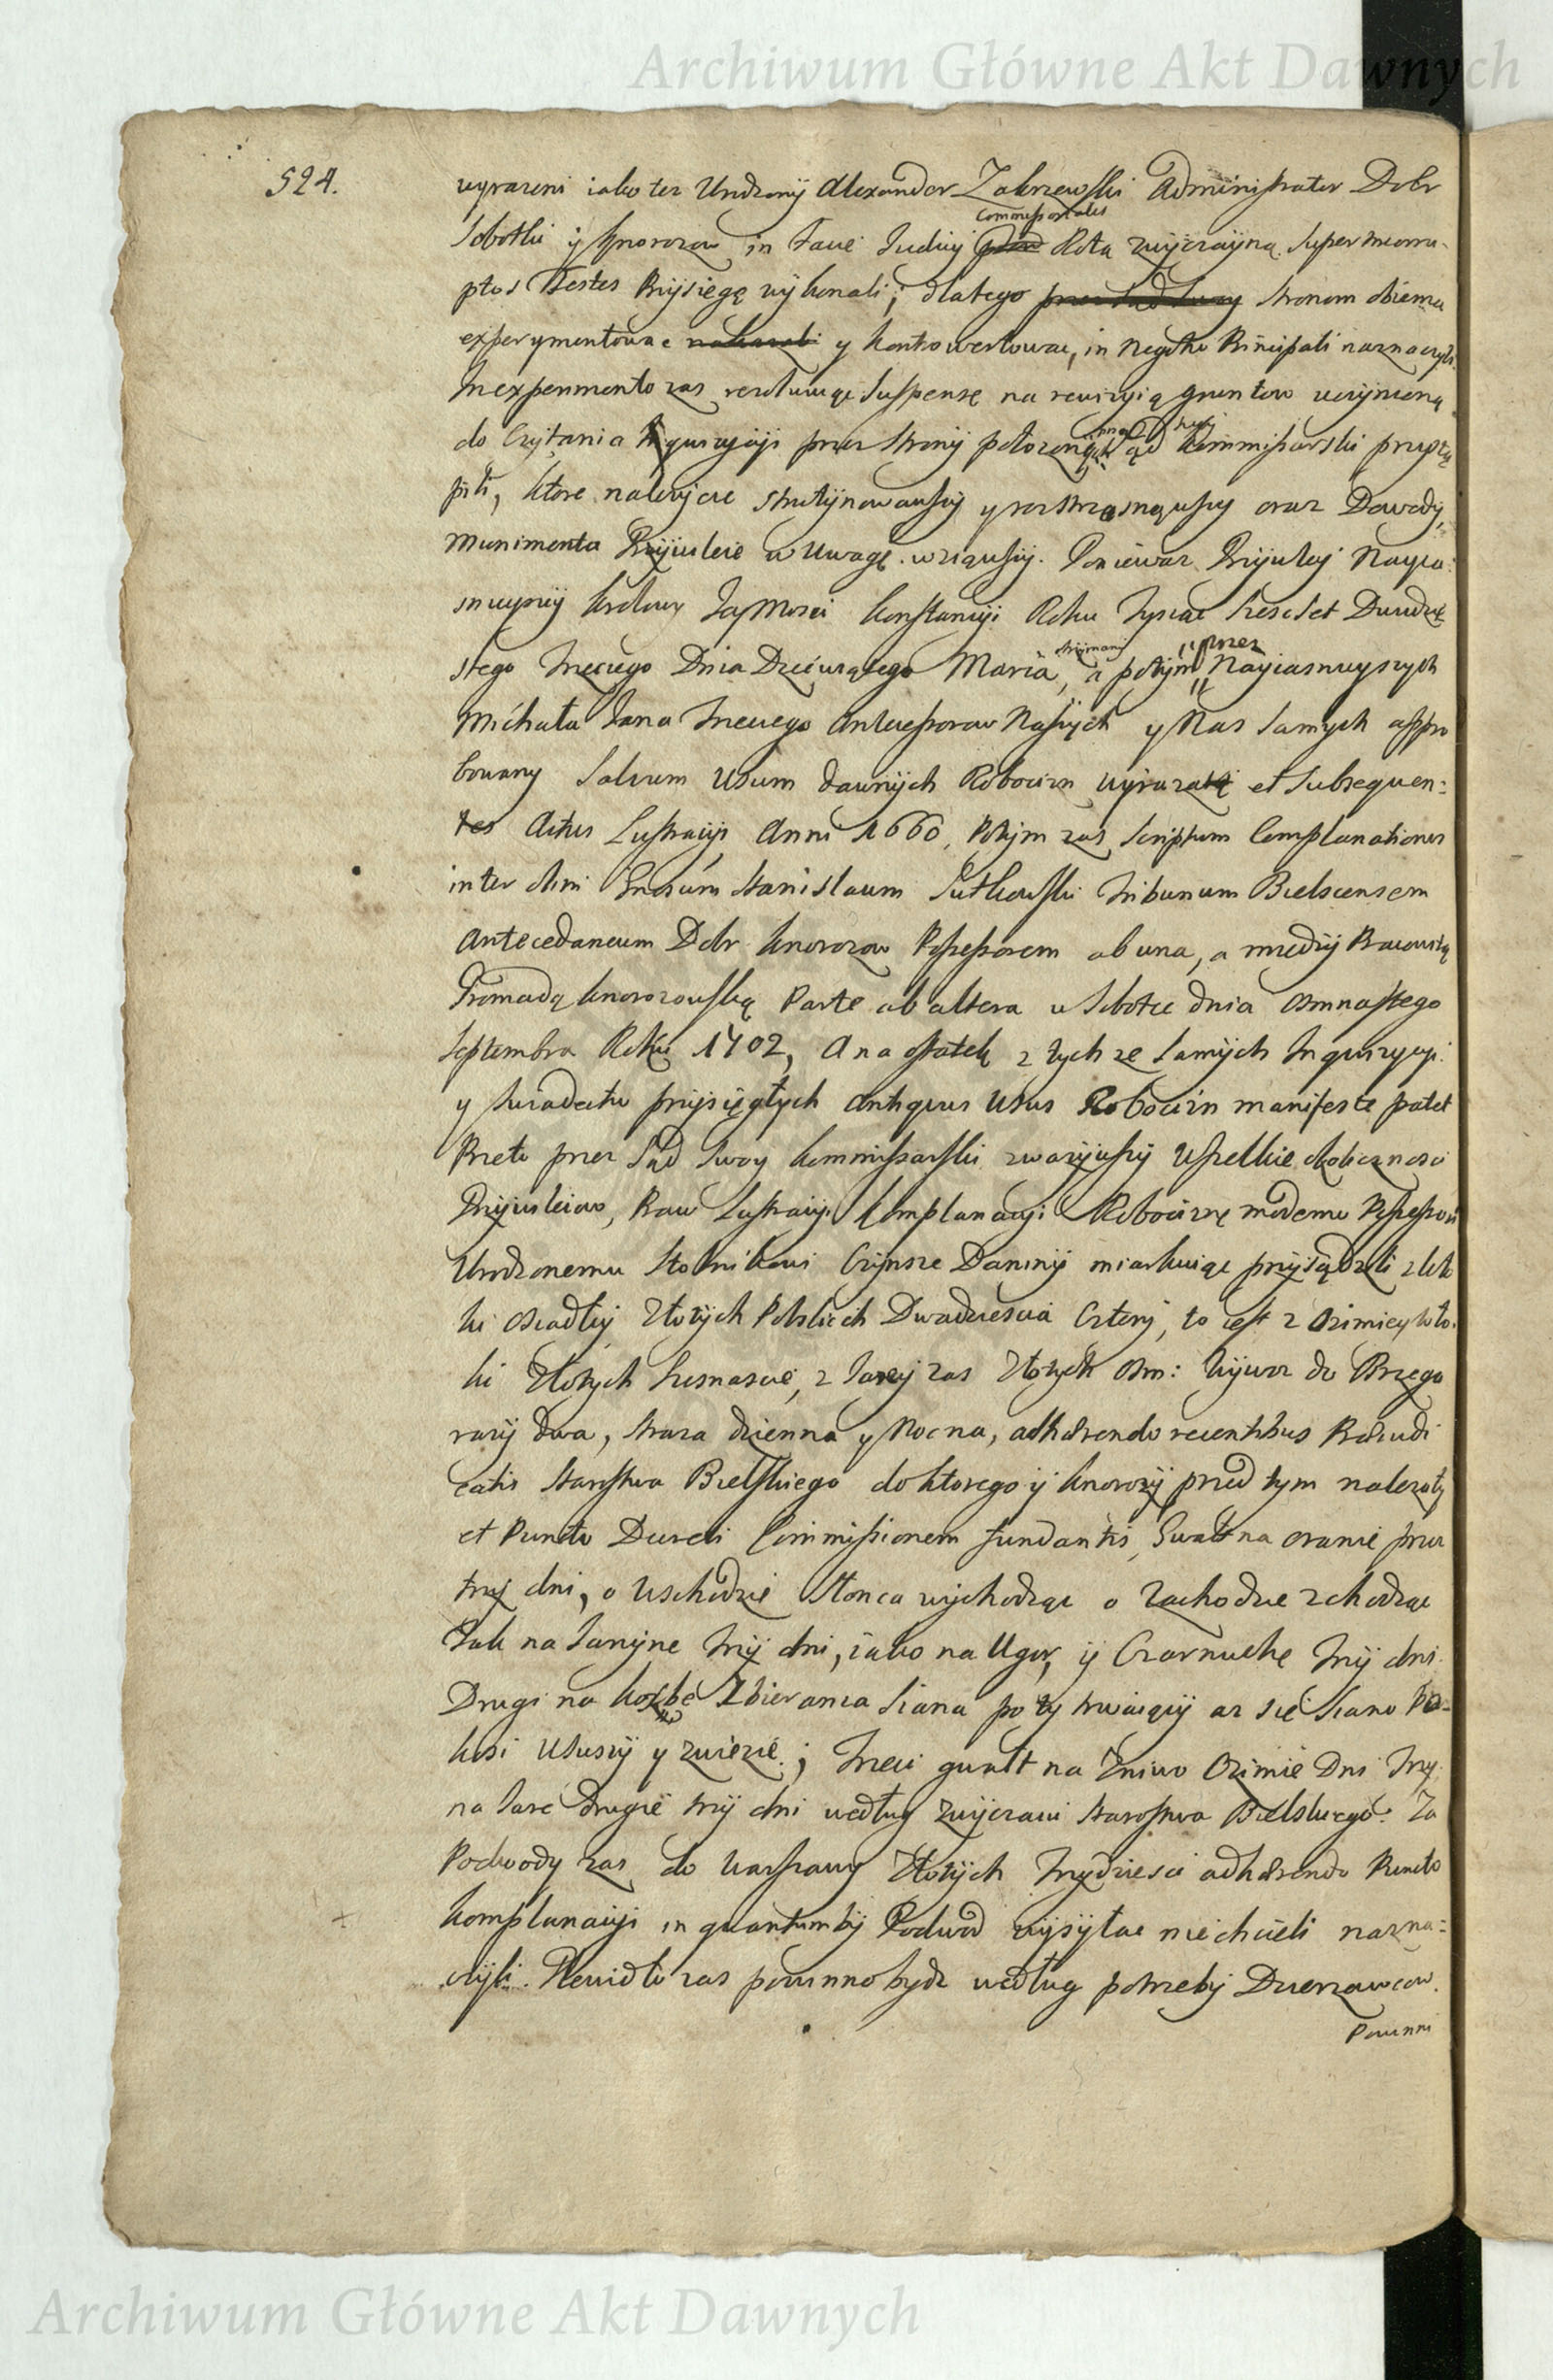 Archiwum Główne Akt Dawnych
524.
wyrazeni iako tez Urodzony Alexander Zakrzewski Administrator Dobr
Comonstrales
Sobotki y Knorozow in Facie Judicij Rotą zwyczayną super
ptos Testes Przysięgę wykonali; dlatego przez Sąd Swoy Stronom obiema
experymentowac nakazali y kontrowertowac, in Negotio Principali naznaczyli.
In experimento zas rezolwuiąc Suspensę na rewizyią gruntow uczynioną
do Czytania Inquizycyi przez Strony położonych Sąd Kommissarski przystą
pił, ktore nalezycie skrutynowawszy y roztrząsnąwszy oraz Dowody,
Munimenta Przywileie w Uwagę wziąwszy. Poniewaz Przywiley Nayia:
snieyszey Krolowy JeyMosci Konstancyi Roku Tysiąc Szescset Dwudzie
stego Trzeciego Dnia Dziewiątego Marca, a potym przez Nayiasnieyszych
Michała Jana Trzeciego Antecessorow Naszych y Nas Samych appro
bowany Salvum Usum dawnych Robocizn wyraza et Subsequen:
tes Actus Lustracyi Anni 1660, Potym zas Scriptum Complanationis
inter olim Gnosum Stanislaum Sutkowski Tribunum Bielscensem
Antecedaneum Dobr Knorozow Possessorem ab una, a między Pracowitą
Gromadą Knorozowską Parte ab altera w Sobotce dnia Osmnastego
Septembra Roku 1702, A na ostatek z tych ze Samych Inquizycyi
y Swiadectw przysięgłych Antiquus Usus Robocizn manifeste patet
Przeto przez Sąd Swoy Kommissarski zwazywszy Wszelkie okolicznosci
Przywileiow, Praw Lustracyi Komplanacyi Robociznę moderno Possessori
Urodzonemu Stolnikowi Czynsze Daniny miarkuiąc przysądzili z Wło
ki Osiadłey Złotych Polskich Dwadziescia Cztery, to iest z Ozimiey wło
ki Złotych Szesnascie, z Jarey zas Złotych Osm: Wywoz do Brzegu
razy dwa, Straza dzienna y Nocna, adhærendo recentibus Præjudi
catis Starostwa Bielskiego do ktorego y Knorozy przed tym nalezały
et Puncto Decreti Commissionem fundantis, Gwałt na oranie przez
trzy dni, o Wschodzie Słonca wychodząc o Zachodzie zchodząc
Tak na Jarzyne trzy dni, iako na Ugor, y Czarnuchę trzy dni.
Drugi na kosbę Zbierania Siana po ty trwaiący az się Siano Po=
kosi Ususzy y zwiezie; Trzeci gwałt na Zniwo Ozimie Dni trzy
na Jare drugie trzy dni według zwyczaiu Starostwa Bielskiego. Za
Podwody zas do Warszawy Złotych Trzydziesci adhærendo Puncto
Komplanacyi in quantumby Podwod wysyłac niechcieli nazna=
czyli. Mewidło zas powinno bydz według potrzeby Dzierzawcow.
Powinni
Archiwum Główne Akt Dawnych